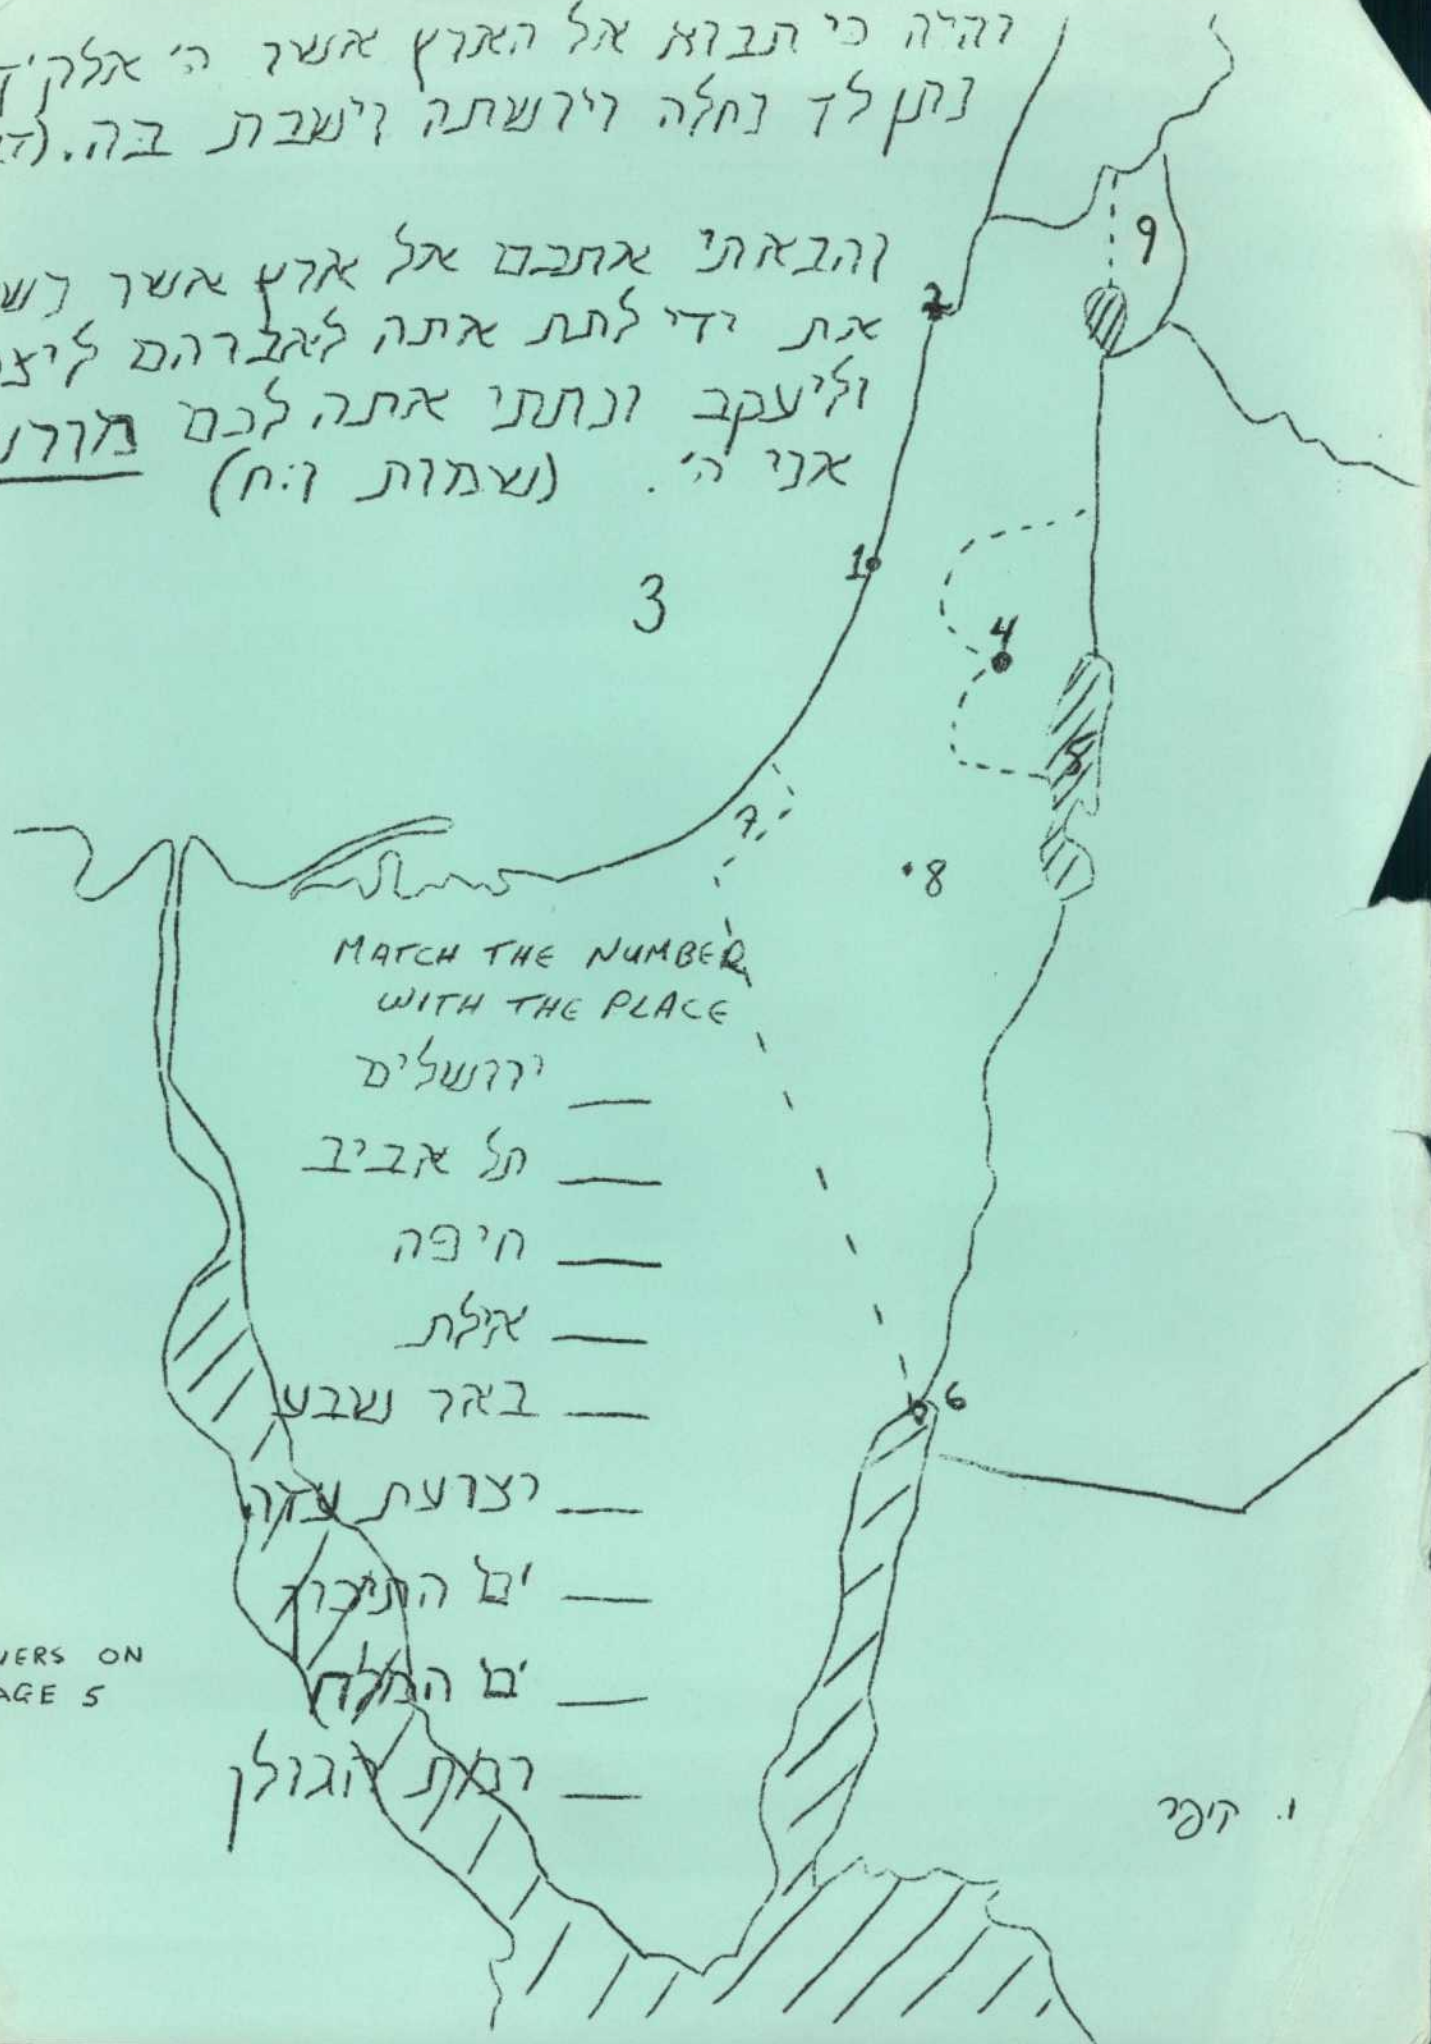 והיה כי תבוא אל הארץ אשר ה׳ אלקיך
נתן לך נחלה וירשתה וישבת בה.
והבאתי אתכם אל ארץ אשר נש
את ידי לתת אתה לאברהם ליצ
וליעקב ונתתי אתה לכם מורש
אני ה׳. (שמות ו:ח)
9
2
1
3
4
5
7
8
MATCH THE NUMBER
WITH THE PLACE
ירושלים
תל אביב
חיפה
אילת
באר שבע
6
רצועת עזה
ים התיכון
VERS ON
AGE 5
ים המלח
רמת הגולן
ו. קופר